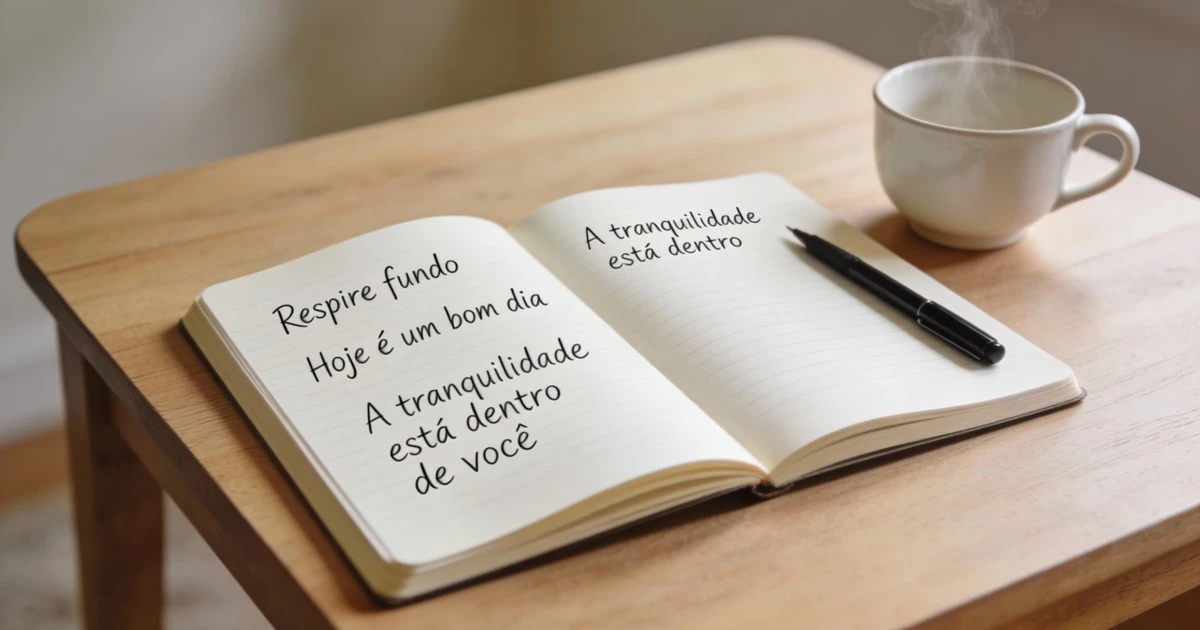 Respire fundo
Hoje é um bom dia
A tranquilidade
está dentro
de você
A tranquilidade
está dentro